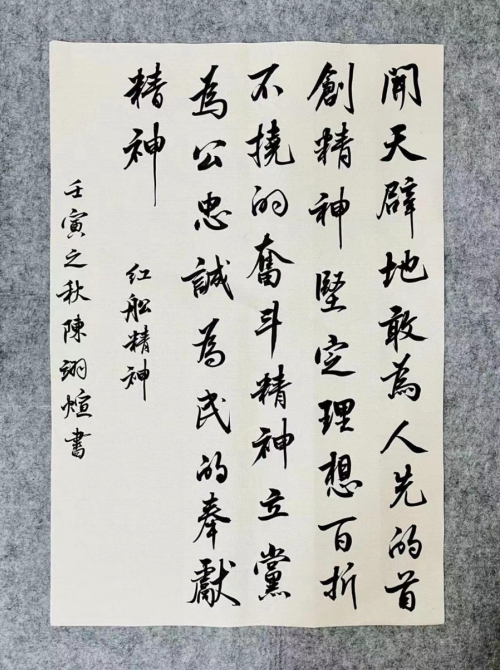 開天辟地敢為人先的首
創精神堅定理想百折
不撓的奮斗精神立黨
為公忠誠為民的奉獻
精神
红船精神
壬寅之秋陳翊煊書